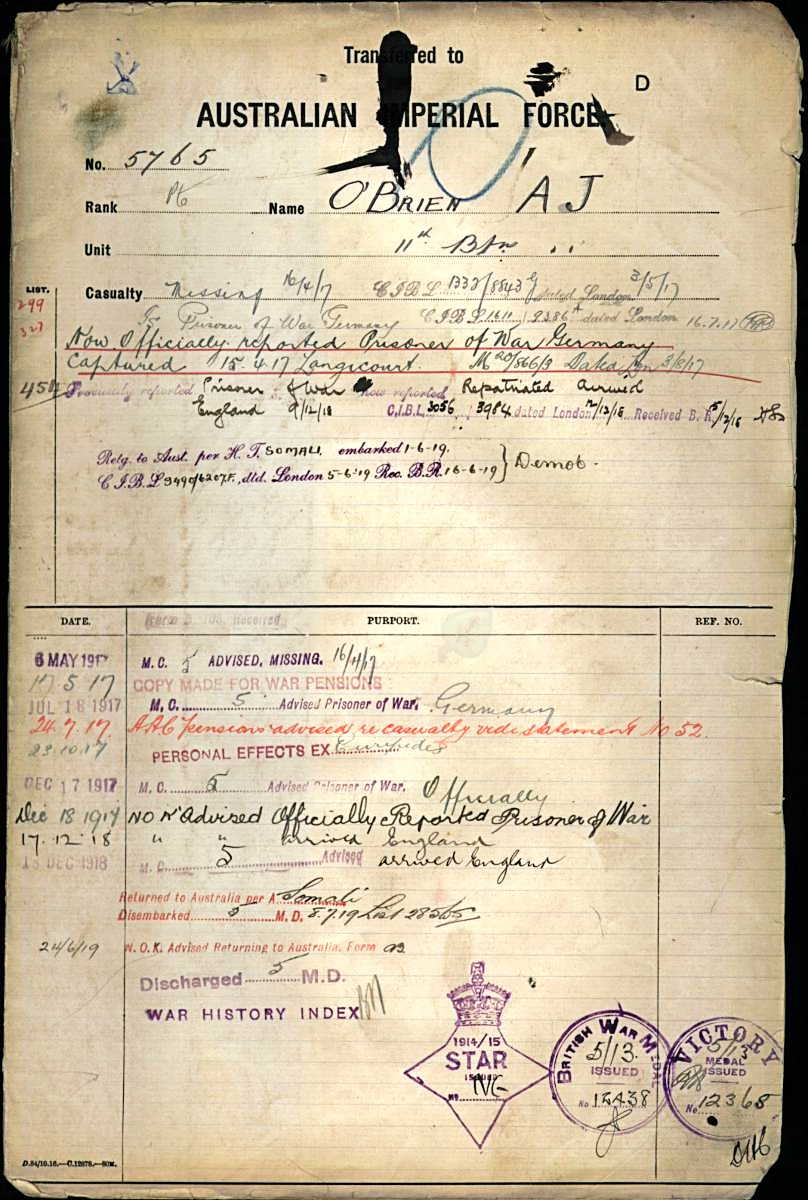 Transferred to
D
AUSTRALIAN IMPERIAL FORCE.
No. 5765
Rank Pte Name O'BRIEN A J
Unit 11th Btn
LIST.
Casualty Missing 16/4/17 C.I.B.L. dated London 3/5/17
299
Prisoner of War Germany C.I.B.L. dated London 16.7.17
327
Now Officially reported Prisoner of War Germany
Captured 15.4.17 3/8/17
Previously reported Prisoner of War now reported Repatriated arrived
England 9/12/18 C.I.B.L. 3056 3984 dated London Received B.R.
Retg. to Aust. per H.T. SOMALI embarked 1-6-19.
C.I.B.L dtd. London 5-6-19 Rec. B.R. 16-6-19 } Demob.
DATE. PURPORT. REF. NO.
6 MAY 1917 M.C. 5 ADVISED, MISSING. 16/4/17
17.5.17 COPY MADE FOR WAR PENSIONS
JUL 18 1917 M.C. 5 Advised Prisoner of War. Germany
24.7.17. Pensions advised re casualty vide statement No 52.
23.10.17 PERSONAL EFFECTS EX Euripides
DEC 17 1917 M.C. 5 Advised Prisoner of War. Officially
Dec 18 1917 Advised Officially Reported Prisoner of War
17.12.18 " " arrived England
DEC 1918 M.C. 5 Advised arrived England
Returned to Australia per Somali
Disembarked 5 M.D. List
24/6/19 N.O.K. Advised Returning to Australia. Form
Discharged 5 M.D.
WAR HISTORY INDEX
1914/15
STAR
ISSUED
No.
BRITISH WAR MEDAL
5/13.
ISSUED
No
VICTORY
5/13
MEDAL
ISSUED
No. 12365
D.84/10.16.—C.12878.—50M.